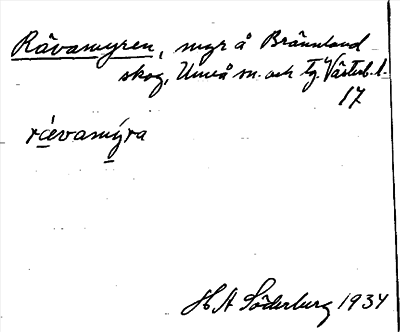 Rävamyren, myr å Brännland
skog, Umeå sn. och tg. Västerb. l.
17
rävamýra
H A Söderberg 1934